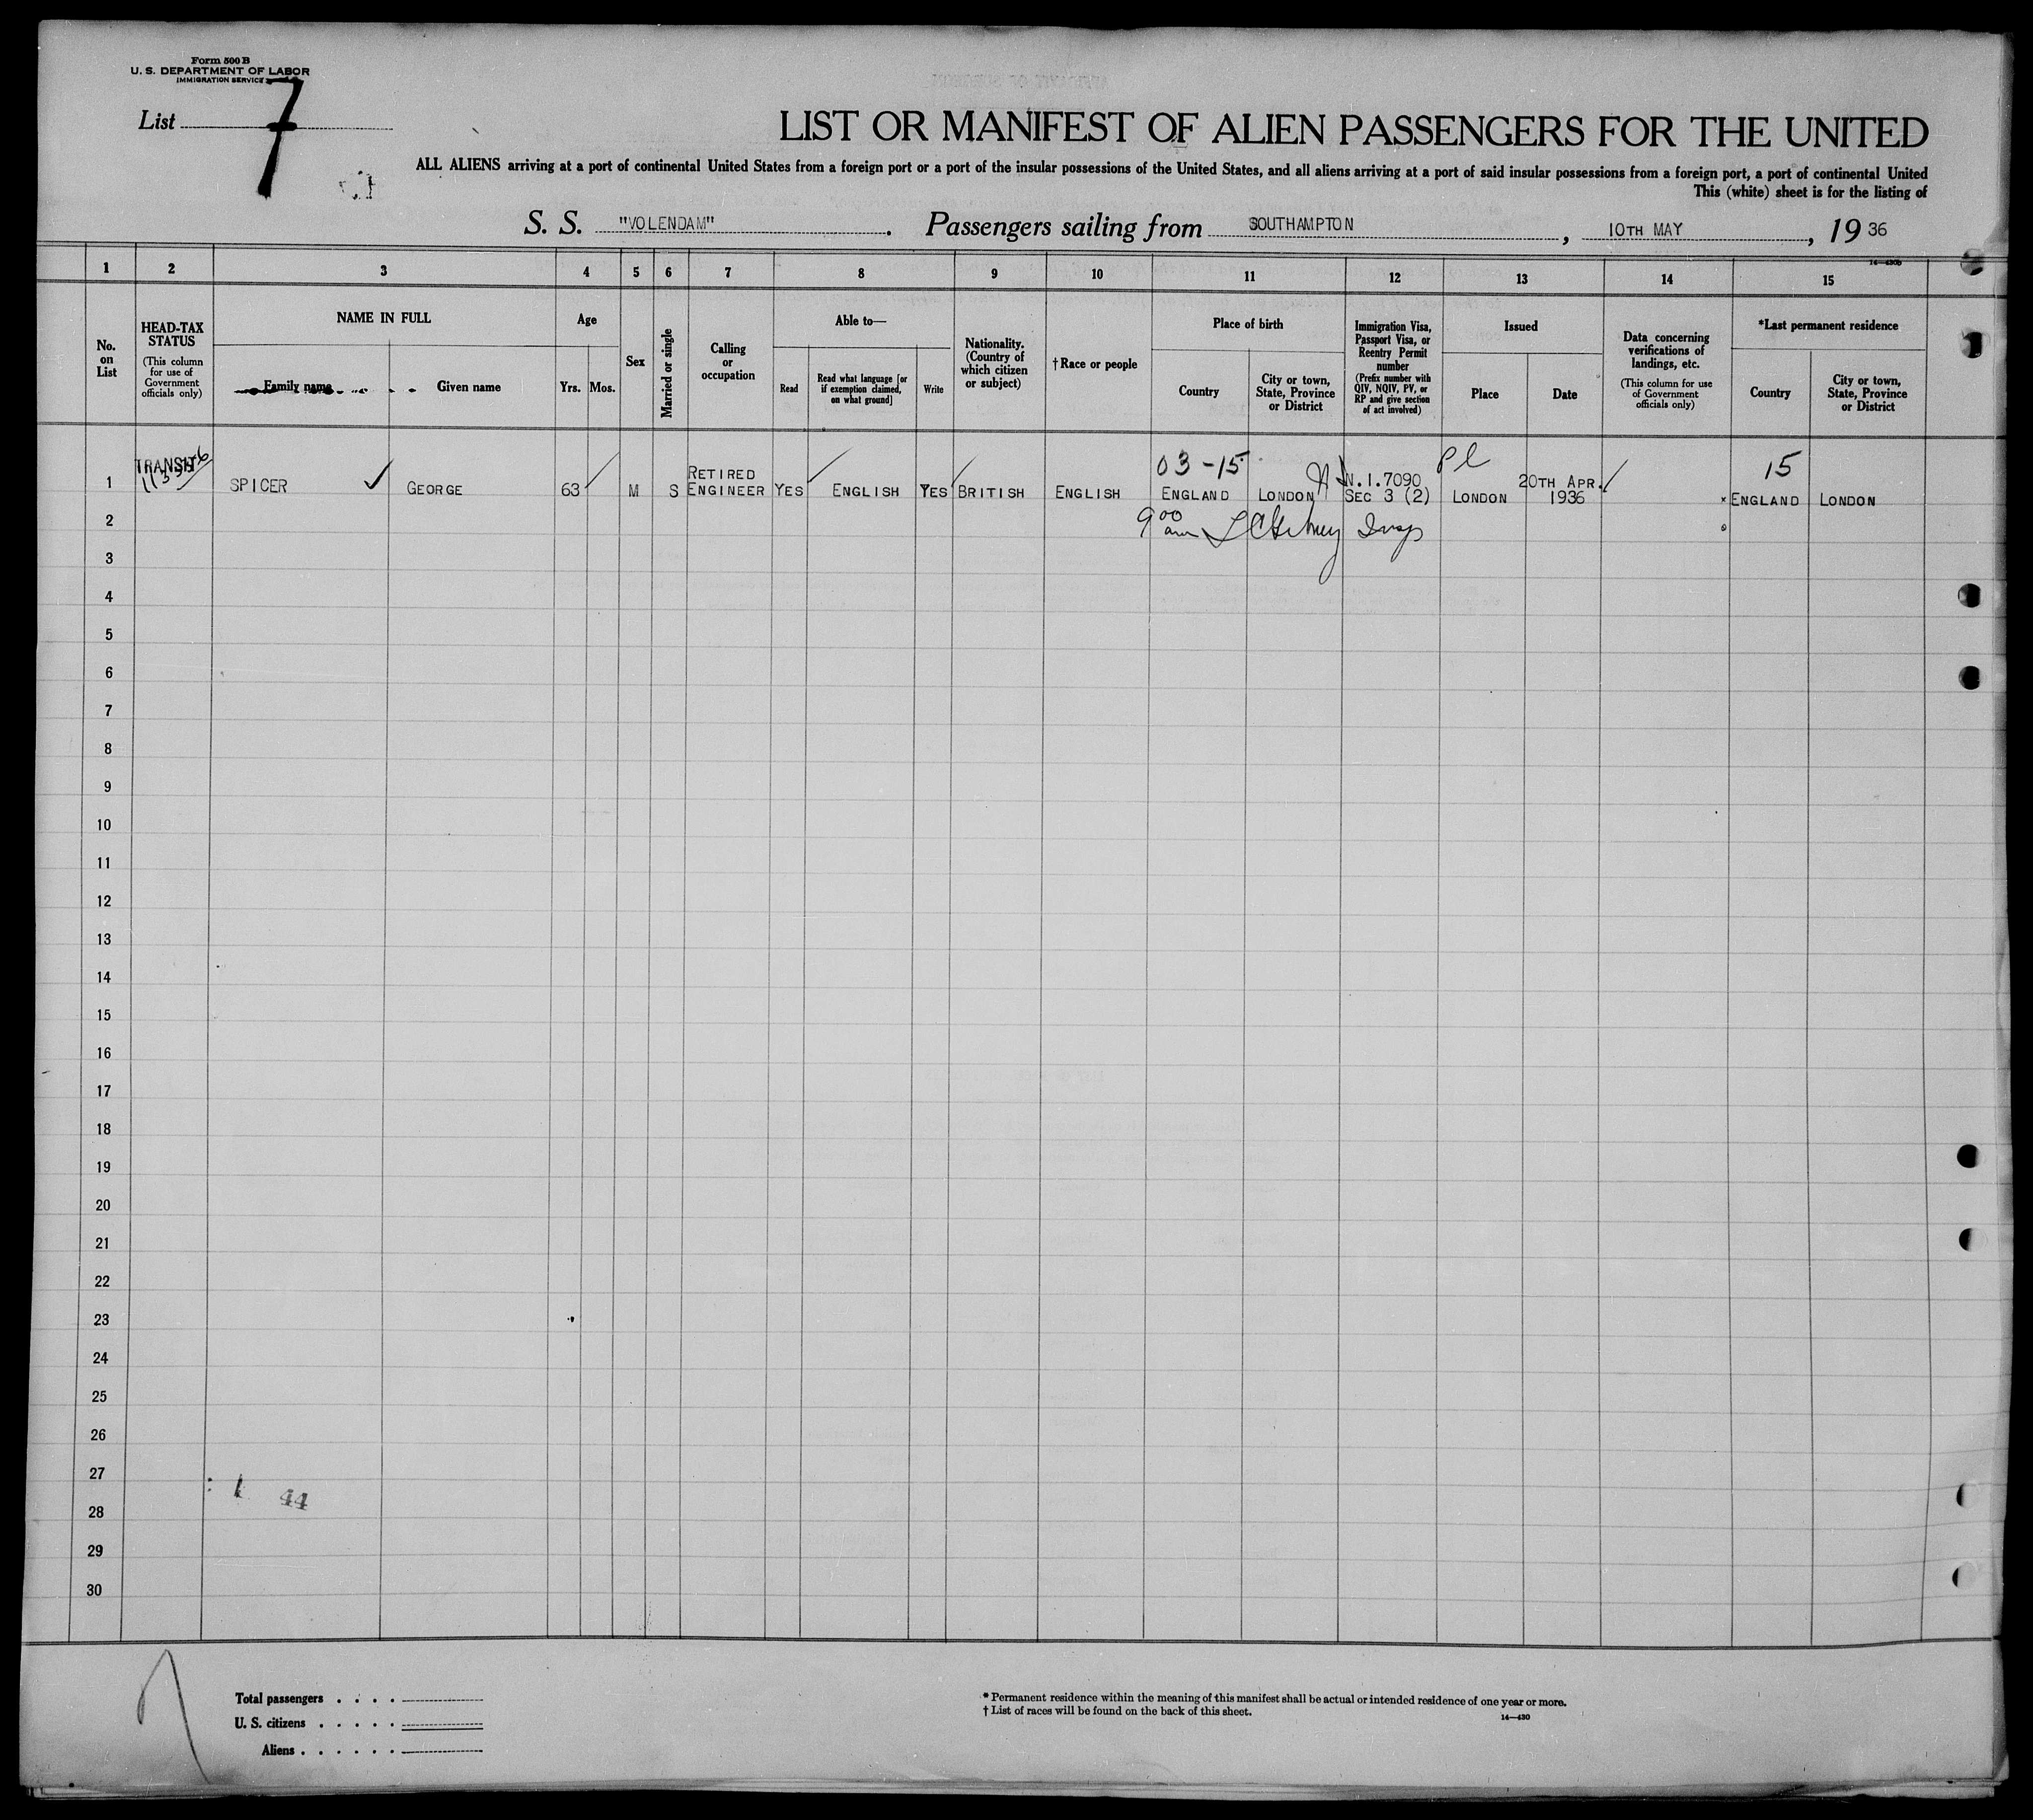 Form 500 B
U. S. DEPARTMENT OF LABOR
IMMIGRATION SERVICE
List 7
LIST OR MANIFEST OF ALIEN PASSENGERS FOR THE UNITED
ALL ALIENS arriving at a port of continental United States from a foreign port or a port of the insular possessions of the United States, and all aliens arriving at a port of said insular possessions from a foreign port, a port of continental United
This (white) sheet is for the listing of
S. S. "VOLENDAM". Passengers sailing from SOUTHAMPTON, 10TH MAY, 1936
14—430b
1 2 3 4 5 6 7 8 9 10 11 12 13 14 15
No. on List
HEAD-TAX STATUS
(This column for use of Government officials only)
NAME IN FULL
Family name
Given name
Age
Yrs.
Mos.
Sex
Married or single
Calling or occupation
Able to—
Read
Read what language [or if exemption claimed, on what ground]
Write
Nationality. (Country of which citizen or subject)
†Race or people
Place of birth
Country
City or town, State, Province or District
Immigration Visa, Passport Visa, or Reentry Permit number
(Prefix number with QIV, NQIV, PV, or RP and give section of act involved)
Issued
Place
Date
Data concerning verifications of landings, etc.
(This column for use of Government officials only)
*Last permanent residence
Country
City or town, State, Province or District
03-15 Pl 15
1 TRANSIT SPICER GEORGE 63 M S RETIRED ENGINEER YES ENGLISH YES BRITISH ENGLISH ENGLAND LONDON N.I.7090 SEC 3 (2) LONDON 20TH APR. 1936 ENGLAND LONDON
9 00 am Insp
2
3
4
5
6
7
8
9
10
11
12
13
14
15
16
17
18
19
20
21
22
23
24
25
26
27
1 44
28
29
30
Total passengers . . . .
U. S. citizens . . . . .
Aliens . . . . . .
* Permanent residence within the meaning of this manifest shall be actual or intended residence of one year or more.
† List of races will be found on the back of this sheet.
14—430